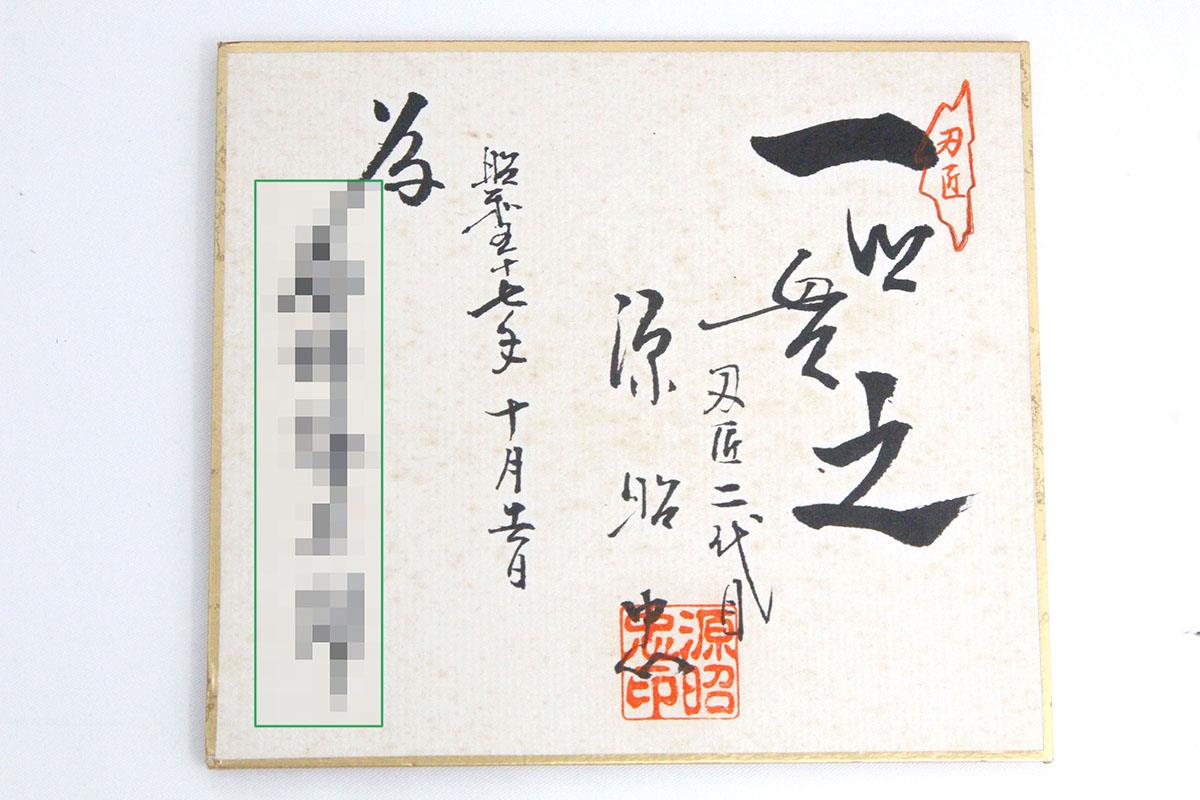 刃匠
一以貫之
刃匠二代目
源昭忠
源昭忠印
昭和五十七年十月吉日
為